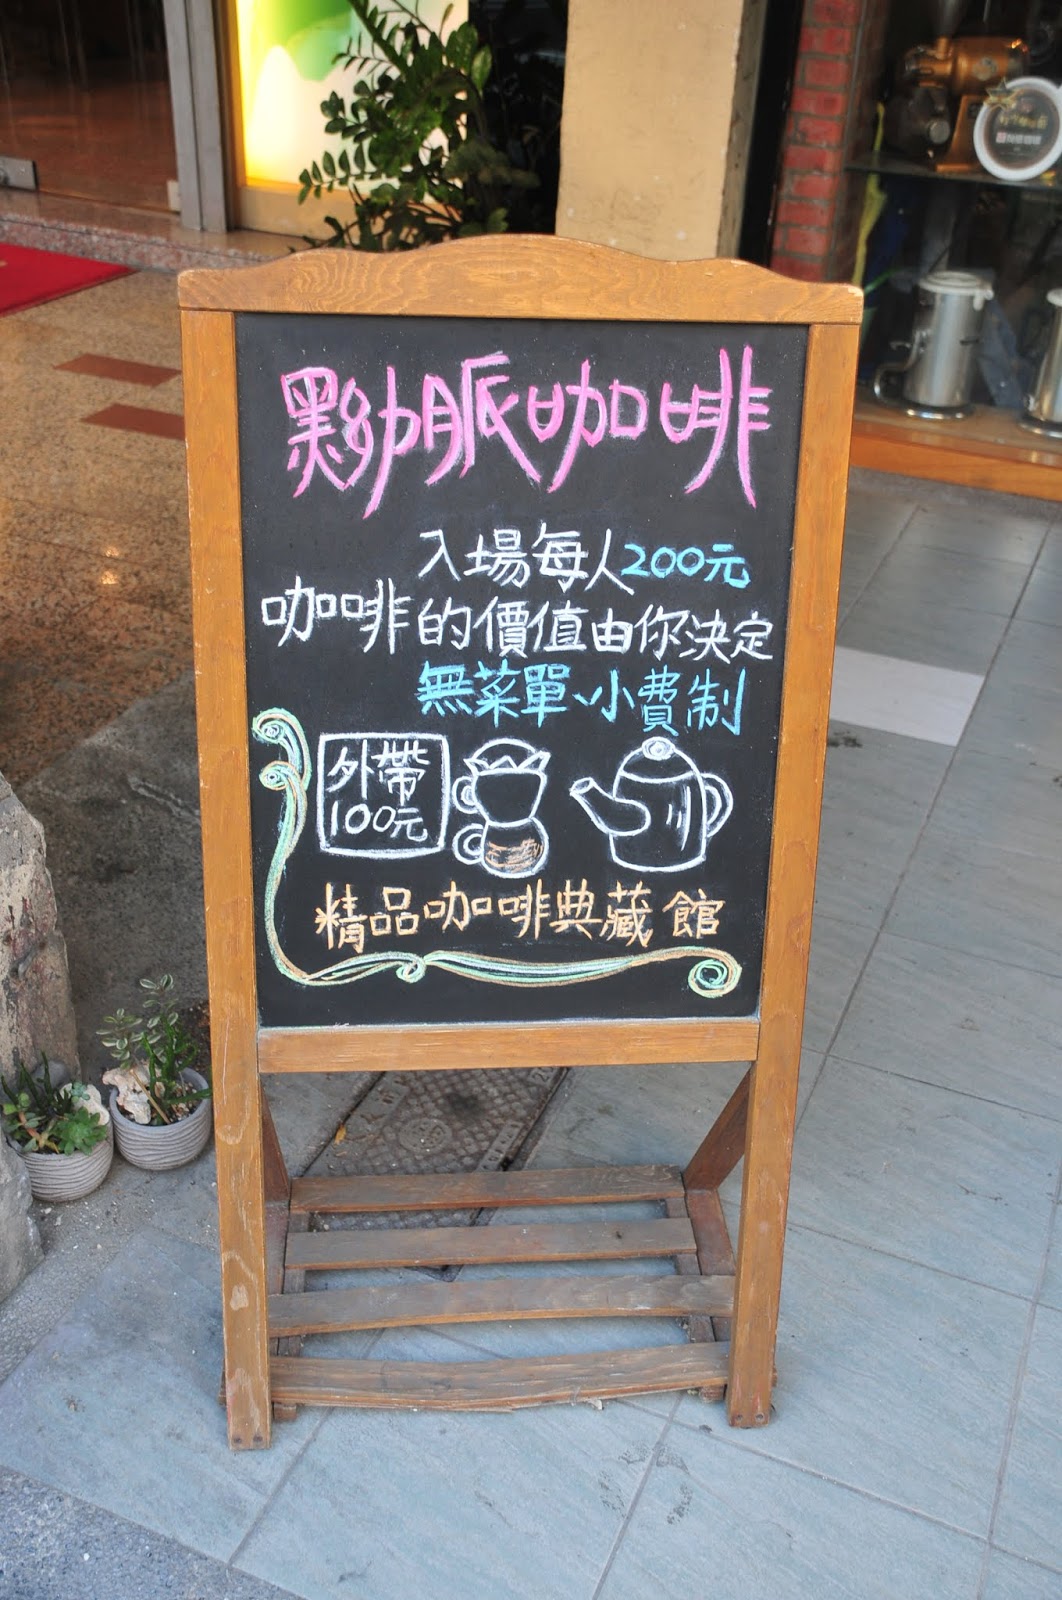 黝脈咖啡
入場每人200元
咖啡的價值由你決定
無菜單、小費制
外帶
100元
精品咖啡典藏館